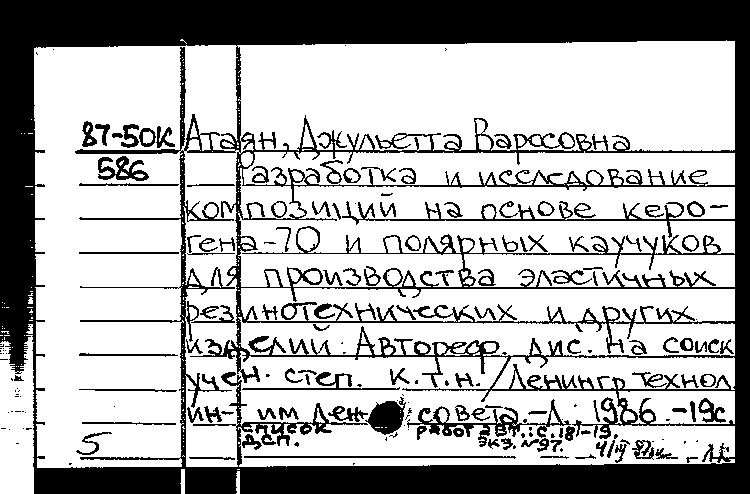 87-50К Атаян, Джульетта Варосовна
586 Разработка и исследование
композиций на основе керо-
гена-70 и полярных каучуков
для производства эластичных
резинотехнических и других
изделий: Автореф. дис. на соиск
учен. степ. к.т.н. / Ленингр технол
ин-т им Лен совета. -Л. 1986 -19с.
список работ авт.: с. 18-19.
5 дсп. экз. №97.